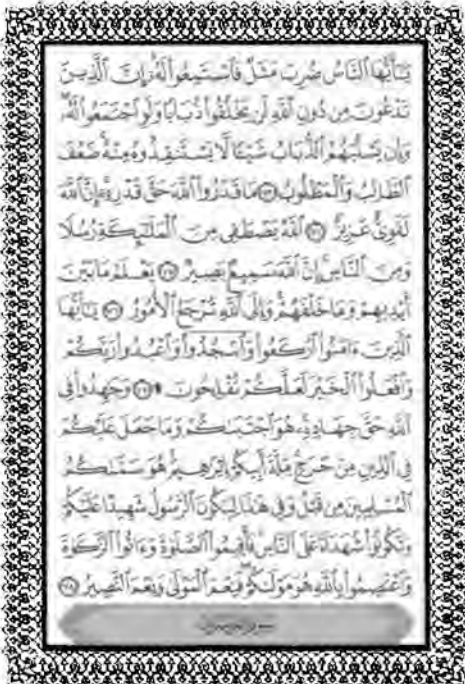 يَٰٓأَيُّهَا ٱلنَّاسُ ضُرِبَ مَثَلٌ فَٱسْتَمِعُوا۟ لَهُۥٓ إِنَّ ٱلَّذِينَ
تَدْعُونَ مِن دُونِ ٱللَّهِ لَن يَخْلُقُوا۟ ذُبَابًا وَلَوِ ٱجْتَمَعُوا۟ لَهُۥ
وَإِن يَسْلُبْهُمُ ٱلذُّبَابُ شَيْـًٔا لَّا يَسْتَنقِذُوهُ مِنْهُ ضَعُفَ
ٱلطَّالِبُ وَٱلْمَطْلُوبُ ٧٣ مَا قَدَرُوا۟ ٱللَّهَ حَقَّ قَدْرِهِۦٓ إِنَّ ٱللَّهَ
لَقَوِىٌّ عَزِيزٌ ٧٤ ٱللَّهُ يَصْطَفِى مِنَ ٱلْمَلَٰٓئِكَةِ رُسُلًا
وَمِنَ ٱلنَّاسِ إِنَّ ٱللَّهَ سَمِيعٌۢ بَصِيرٌ ٧٥ يَعْلَمُ مَا بَيْنَ
أَيْدِيهِمْ وَمَا خَلْفَهُمْ وَإِلَى ٱللَّهِ تُرْجَعُ ٱلْأُمُورُ ٧٦ يَٰٓأَيُّهَا
ٱلَّذِينَ ءَامَنُوا۟ ٱرْكَعُوا۟ وَٱسْجُدُوا۟ وَٱعْبُدُوا۟ رَبَّكُمْ
وَٱفْعَلُوا۟ ٱلْخَيْرَ لَعَلَّكُمْ تُفْلِحُونَ ۩ ٧٧ وَجَٰهِدُوا۟ فِى
ٱللَّهِ حَقَّ جِهَادِهِۦ هُوَ ٱجْتَبَىٰكُمْ وَمَا جَعَلَ عَلَيْكُمْ
فِى ٱلدِّينِ مِنْ حَرَجٍ مِّلَّةَ أَبِيكُمْ إِبْرَٰهِيمَ هُوَ سَمَّىٰكُمُ
ٱلْمُسْلِمِينَ مِن قَبْلُ وَفِى هَٰذَا لِيَكُونَ ٱلرَّسُولُ شَهِيدًا عَلَيْكُمْ
وَتَكُونُوا۟ شُهَدَآءَ عَلَى ٱلنَّاسِ فَأَقِيمُوا۟ ٱلصَّلَوٰةَ وَءَاتُوا۟ ٱلزَّكَوٰةَ
وَٱعْتَصِمُوا۟ بِٱللَّهِ هُوَ مَوْلَىٰكُمْ فَنِعْمَ ٱلْمَوْلَىٰ وَنِعْمَ ٱلنَّصِيرُ ٧٨